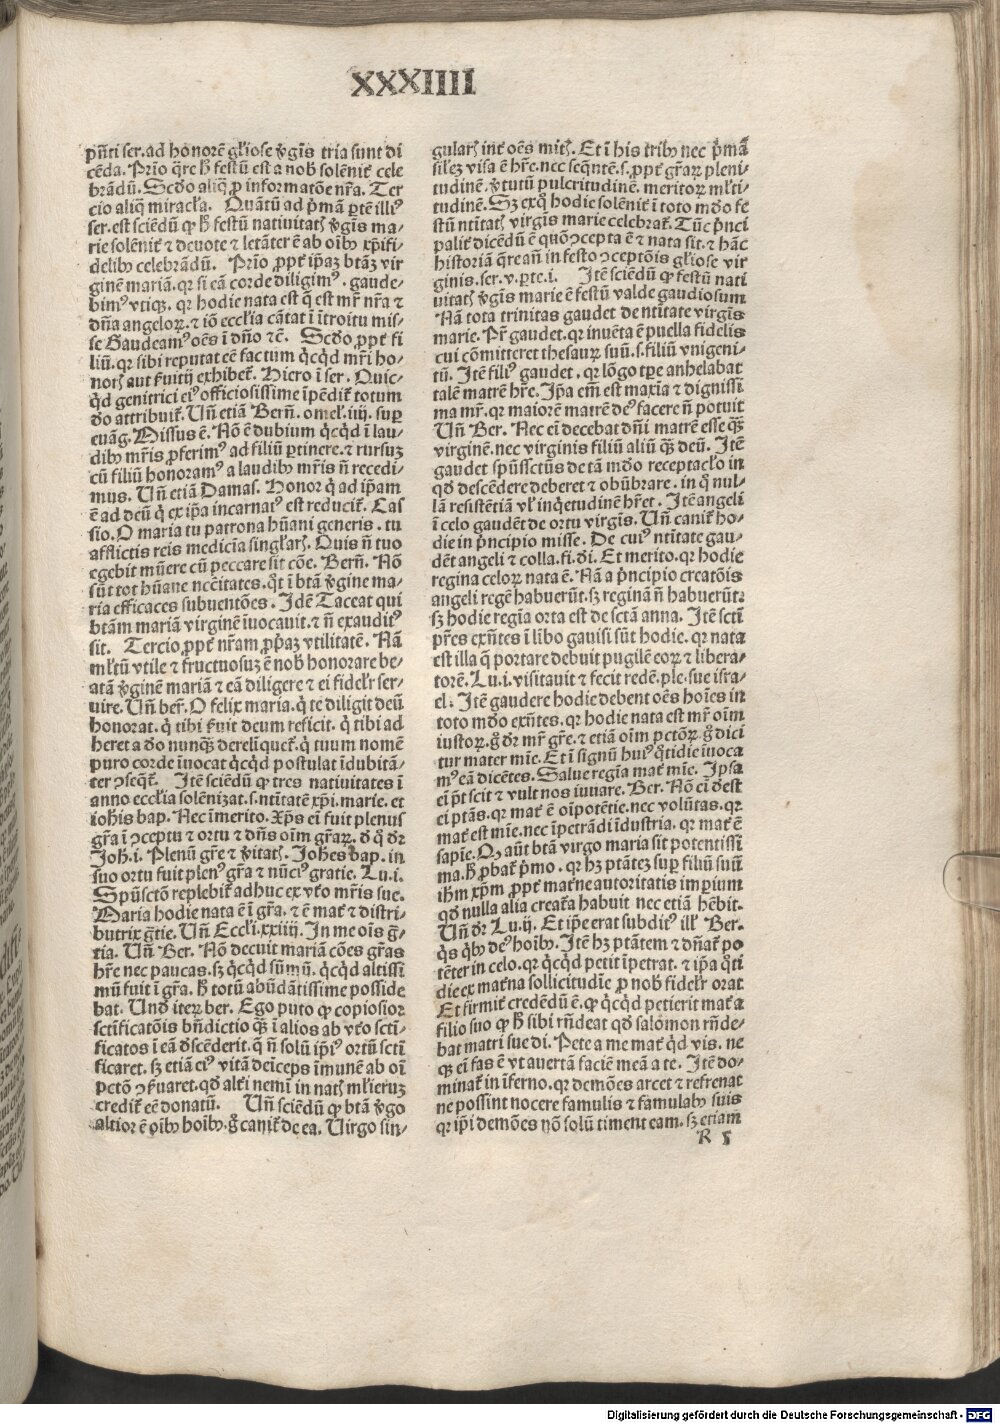 XXXIIII
pn̄ti ser. ad honorē gl̄iose v̄gīs tria sunt di
cēda. Prīo q̄re h̄ festū est a nob̄ solēnit̄ cele
brādū. Scd̄o aliq̄ ꝓ informatōe nr̄a. Ter
cio aliq̄ miracl̄a. Quātū ad p̄mā ꝑtē illiꝰ
ser. est sciēdū ꝙ h̄ festū nativitatꝭ v̄gīs ma-
rie solēnit̄ ⁊ deuote ⁊ letāter ē ab oīb⁹ xp̄ifi-
delib⁹ celebrādū. Prīo ꝓpt̄ ip̄aꝫ btāꝫ vir
ginē mariā. qꝛ si eā corde diligimꝰ. gaude-
bimꝰ vtiqꝫ. qꝛ hodie nata est q̄ est mr̄ nr̄a ⁊
dn̄a angeloꝝ. ⁊ iō eccl̄ia cātat ī ītroitu mis-
se Gaudeamꝰ oēs ī dn̄o ⁊c̄. Scd̄o ꝓpt̄ fi
liū. qꝛ sibi reputat eē factum q̄cq̄d mr̄i ho-
norꝭ aut f̄uitij exhibet̄. Hiero ī ser. Quic-
q̄d genitrici eiꝰ officiosissime īpēdit̄ totum
d̄o attribuit̄. Vn̄ etiā Bern̄. omel̄. iiij. suꝑ
euāg. Missus ē. Nō ē dubium q̄cq̄d ī lau-
dib⁹ mr̄is ꝓferimꝰ ad filiū ꝑtinere. ⁊ rursuꝫ
cū filiū honoramꝰ a laudib⁹ mr̄is n̄ recedi
mus. Vn̄ etiā Damas. Honor q̄ ad ip̄am
ē ad deū q̄ ex ip̄a incarnatꝰ est reducit̄. Cas
sio. O maria tu patrona hūani generis. tu
afflictis reis medicīa singl̄arꝭ. Quis n̄ tuo
egebit mūere cū peccare sit cōe. Bern̄. Nō
sūt tot hūane nc̄citates. q̄t ī btā v̄gine ma-
ria efficaces subuentōes. Idē Taceat qui
btām mariā virginē īuocauit. ⁊ n̄ exauditꝰ
sit. Tercio ꝓpt̄ nr̄am ꝓp̄aꝫ vtilitatē. Nā
ml̄tū vtile ⁊ fructuosuꝫ ē nob̄ honorare be-
atā v̄ginē mariā ⁊ eā diligere ⁊ ei fidel̄r ser-
uire. Vn̄ ber̄. O felix maria. q̄ te diligit deū
honorat. q̄ tibi f̄uit deum reficit. q̄ tibi ad
heret a d̄o nunqꝫ̄ derelīquet̄. q̄ tuum nomē
puro corde īuocat q̄cq̄d postulat īdubitā-
ter ꝯseqt̄. Itē sciēdū ꝙ tres nativitates ī
anno eccl̄ia solēnizat. s. nt̄itatē xp̄i. marie. et
ioh̄is bap. Nec īmerito. Xp̄s ei fuit plenus
gr̄a ī ꝯceptu ⁊ ortu ⁊ dn̄s oīm gr̄aꝝ. d̄ q̄ dr̄
Joh. i. Plenū gr̄e ⁊ v̄itatꝭ. Joh̄es bap. in
suo ortu fuit plenꝰ gr̄a ⁊ nūciꝰ gratie. Lu. i.
Spūsctō replebit̄ adhuc ex vt̄o mr̄is sue.
Maria hodie nata ē ī gr̄a. ⁊ ē mat̄ ⁊ distri-
butrix ḡtie. Vn̄ Eccl̄i. xxiiij. In me oīs ḡ-
tia. Vn̄ Ber. Nō decuit mariā cōes gr̄as
hr̄e nec paucas. sꝫ q̄cq̄d sūmū. q̄cq̄d altissi
mū fuit ī gr̄a. h̄ totū abūdātissime posside
bat. Vnd̄ iteꝝ ber. Ego puto ꝙ copiosior
sctīficatōis bn̄dictio qꝫ̄ ī alios ab vt̄o sctī-
ficatos ī eā d̄scēderit. q̄ n̄ solū ip̄iꝰ ortū sctī
ficaret. sꝫ etiā eiꝰ vitā deīceps īmunē ab oī
pctō ꝯf̄uaret. qd̄ alt̄i nemī in natꝭ ml̄ieruꝫ
credit̄ eē donatū. Vn̄ sciēdū ꝙ btā v̄go
altior ē oīb⁹ hoīb⁹. ḡ canit̄ de ea. Virgo sin-
gularꝭ int̄ oēs mitꝭ. Et ī his trib⁹ nec p̄mā
sil̄eꝫ visa ē hr̄e. nec seqn̄tē. s. ꝓpt̄ gr̄aꝝ pleni-
tudinē. v̄tutū pulcritudinē. meritoꝝ ml̄ti-
tudinē. Sꝫ exq̄ hodie solēnit̄ ī toto mūdo fe
stū nt̄itatꝭ virgīs marie celebrat̄. Tūc p̄nci
palit̄ dicēdū ē quō ꝯcepta ē ⁊ nata sit. ⁊ hāc
historiā q̄re an̄ in festo ꝯceptōis gl̄iose vir
ginis. ser. v. ꝑte. i. Itē sciēdū ꝙ festū nati
uitatꝭ v̄gīs marie ē festū valde gaudiosum
Nā tota trinitas gaudet de nt̄itate virgīs
marie. Pr̄ gaudet. qꝛ inuēta ē puella fidelis
cui cōmitteret thesauꝝ suū. s. filiū vnigeni-
tū. Itē filiꝰ gaudet. qꝛ lōgo tp̄e anhelabat
talē matrē hr̄e. Ip̄a em̄ est maxīa ⁊ dignissi
ma mr̄. qꝛ maiorē matrē deꝰ facere n̄ potuit
Vn̄ Ber. Nec eī decebat dn̄i matrē esse qꝫ̄
virginē. nec virginis filiū aliū qꝫ̄ deū. Itē
gaudet spūssctūs de tā mūdo receptacl̄o in
qd̄ descēdere deberet ⁊ obūbrare. in q̄ nul-
lā resistētiā vl̄ inq̄etudinē hr̄et. Itē angeli
ī celo gaudēt de ortu virgīs. Vn̄ canit̄ ho-
die in p̄ncipio misse. De cuiꝰ nt̄itate gau-
dēt angeli ⁊ colla. fi. d̄i. Et merito. qꝛ hodie
regina celoꝝ nata ē. Nā a p̄ncipio creatōis
angeli regē habuerūt. sꝫ reginā n̄ habuerūt:
sꝫ hodie regīa orta est de sctā anna. Itē sctī
pr̄es exn̄tes ī līmbo gauisi sūt hodie. qꝛ nata
est illa q̄ portare debuit pugilē eoꝝ ⁊ libera-
torē. Lu. i. visitauit ⁊ fecit redē. ple. sue isra-
el. Itē gaudere hodie debent oēs hoīes in
toto mūdo exn̄tes. qꝛ hodie nata est mr̄ oīm
iustoꝝ. ḡ dr̄ mr̄ gr̄e. ⁊ etiā oīm pctōꝝ. ḡ dici
tur mater mīe. Et ī signū huiꝰ q̄tidie īuoca
mꝰ eā dicētes. Salue regīa mat̄ mīe. Ipsa
ei p̄t scit ⁊ vult nos iuuare. Ber. Nō ei d̄est
ei ptās. qꝛ mat̄ ē oīpotētie. nec volūtas. qꝛ
mat̄ est mīe. nec īpetrādi īdustria. qꝛ mat̄ ē
sapīe. Ꝙ aūt btā virgo maria sit potentissi
ma. h̄ ꝓbat̄ p̄mo. qꝛ hꝫ ptātēꝫ suꝑ filiū suū
ih̄m xp̄m ꝓpt̄ mat̄ne autoritatis imꝑium
qd̄ nulla alia creat̄a habuit nec etiā hēbit.
Vn̄ dr̄ Lu. ij. Et ip̄e erat subditꝰ ill̄. Ber.
q̄s q̄b⁹ deꝰ hoīb⁹. Itē hꝫ ptātem ⁊ dn̄at̄ po
tēter in celo. qꝛ q̄cq̄d petit īpetrat. ⁊ ip̄a q̄ti
die ex mat̄na sollicitudīe ꝓ nob̄ fidel̄r orat
Et firmit̄ credēdū ē. ꝙ q̄cq̄d petierit mat̄ a
filio suo ꝙ h̄ sibi rn̄deat qd̄ salomon rn̄de-
bat matri sue di. Pete a me mat̄ qd̄ vis. ne
qꝫ ei fas ē vt auertā faciē meā a te. Itē do-
minat̄ in īferno. qꝛ demōes arcet ⁊ refrenat
ne possint nocere famulis ⁊ famulab⁹ suis
qꝛ ip̄i demōes nō solū timent eam. sꝫ etiam
R 5
Digitalisierung gefördert durch die Deutsche Forschungsgemeinschaft - DFG